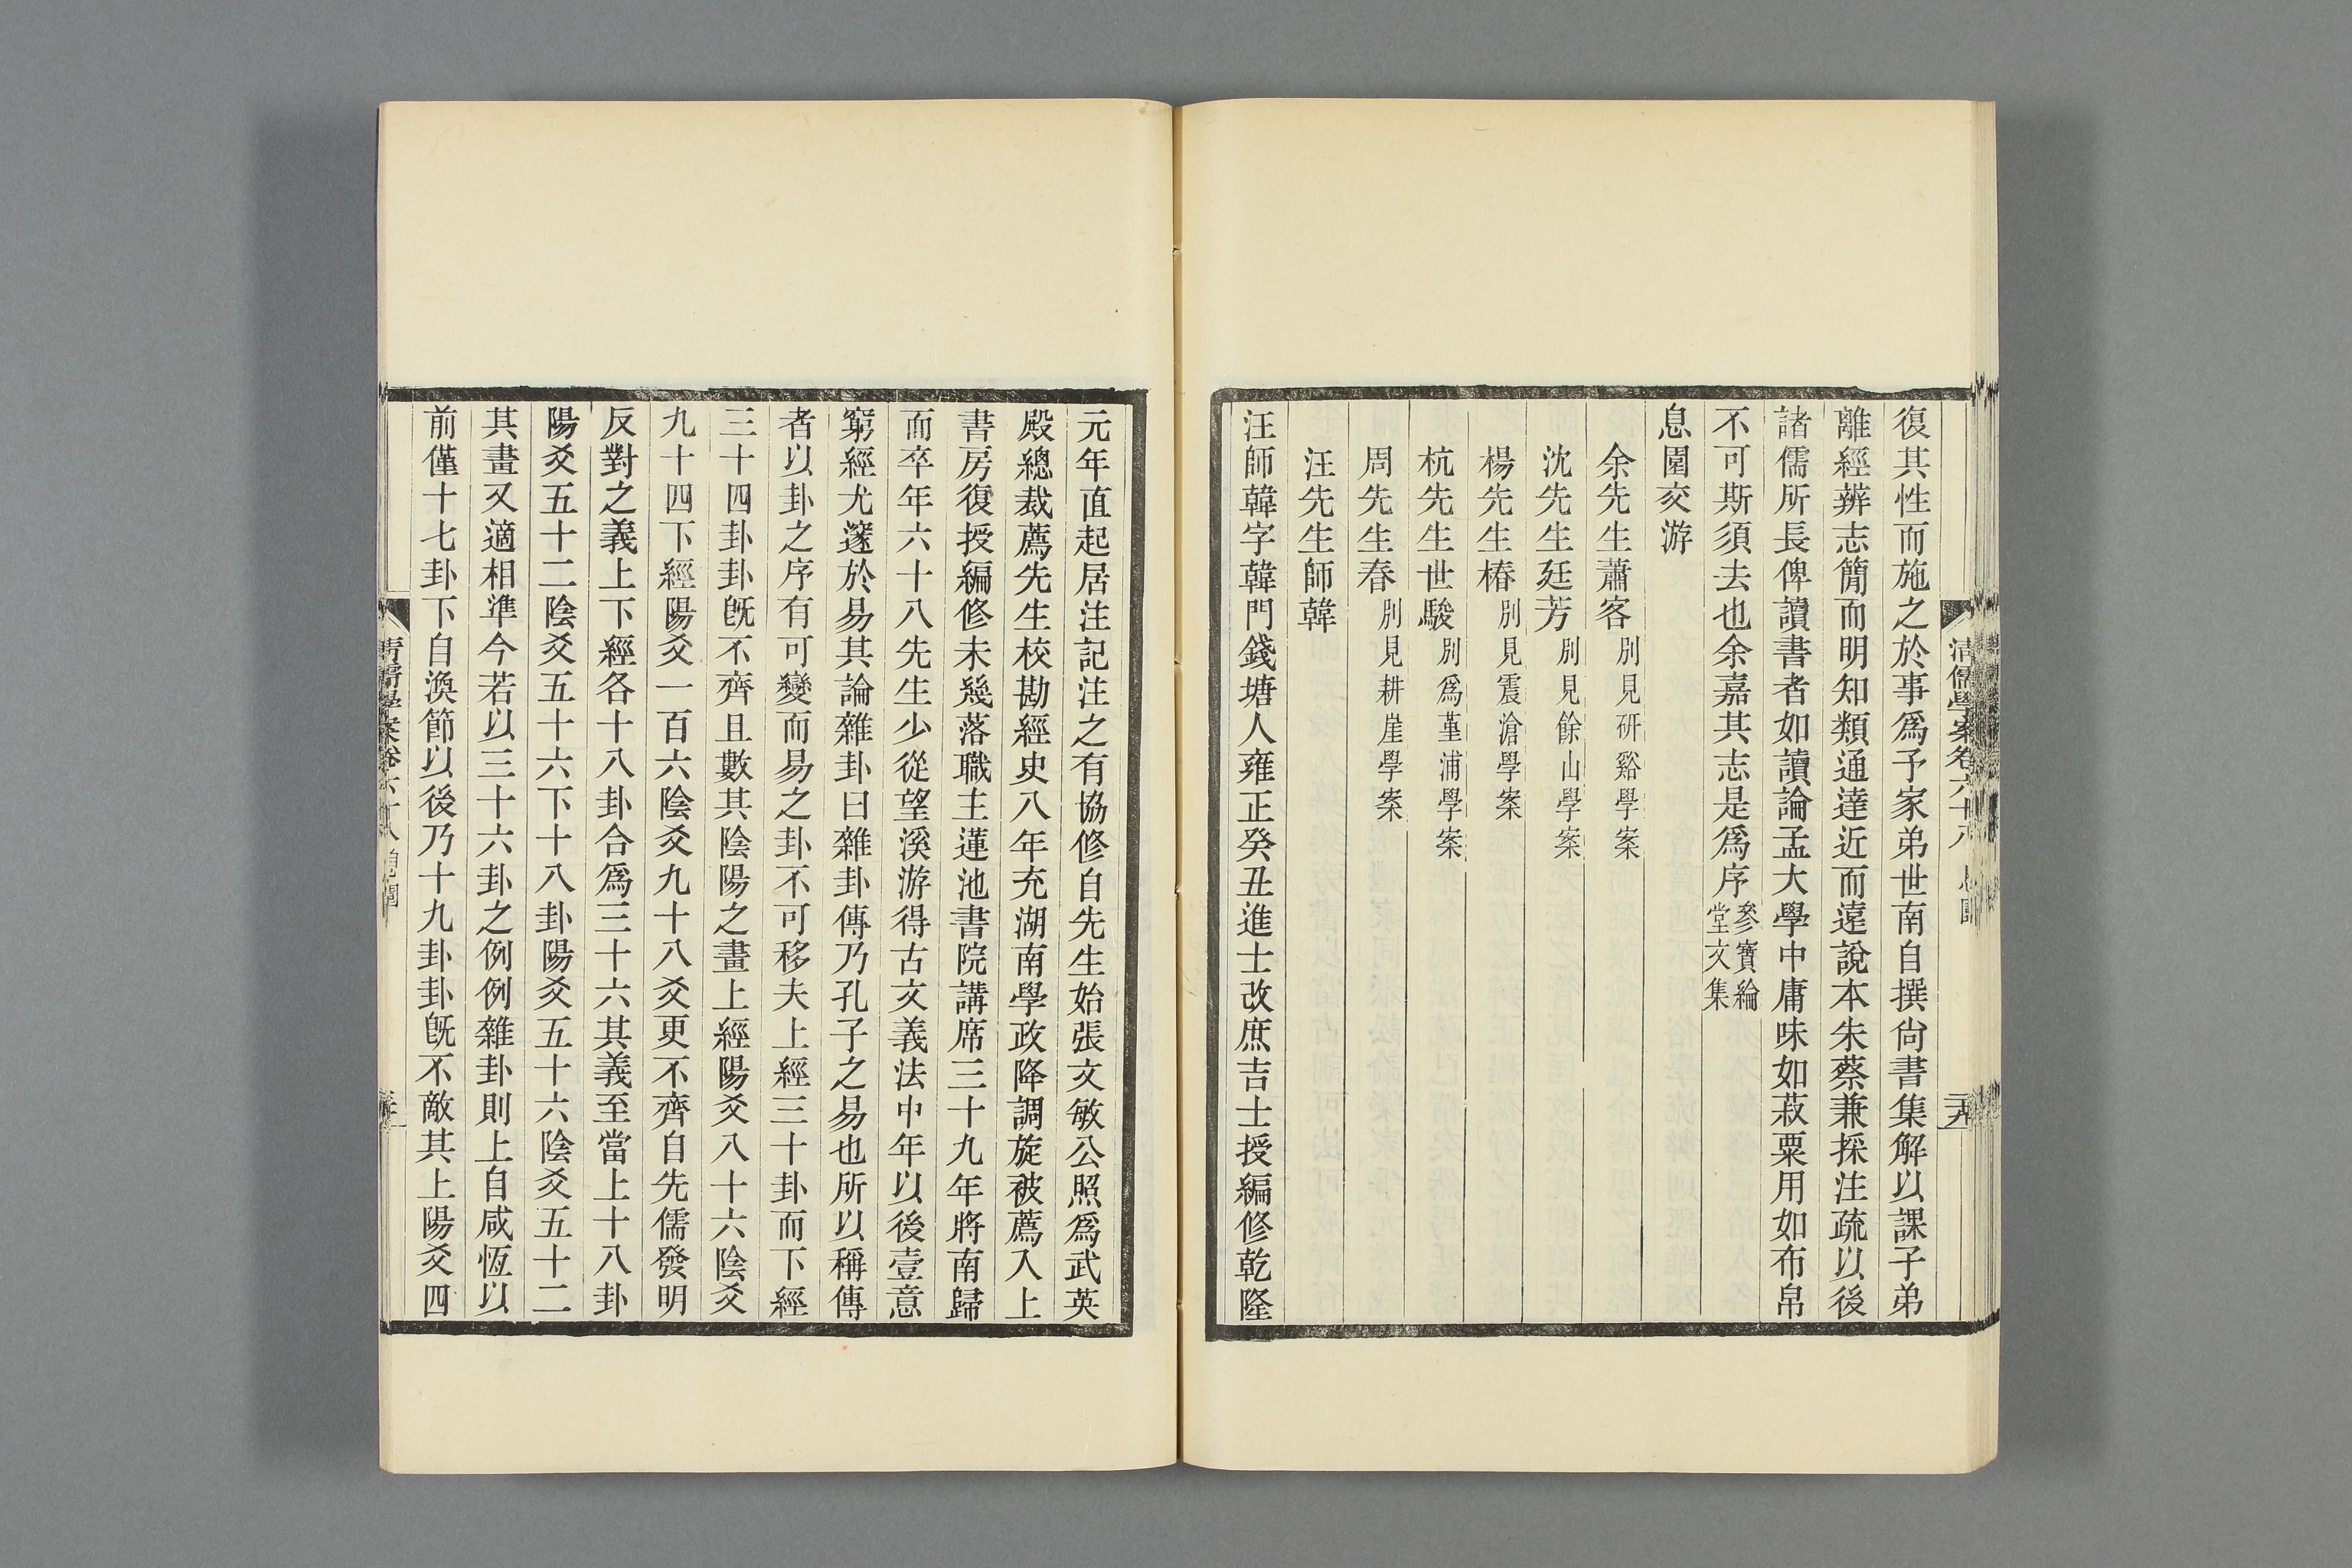 清儒學案卷六十八 息園 二十九
復其性而施之於事爲予家弟世南自撰尙書集解以課子弟
離經辨志簡而明知類通達近而遠說本朱蔡兼採注疏以後
諸儒所長俾讀書者如讀論孟大學中庸味如菽粟用如布帛
不可斯須去也余嘉其志是爲序參寶綸堂文集
息園交游
余先生蕭客別見硏谿學案
沈先生廷芳別見餘山學案
楊先生椿別見震滄學案
杭先生世駿別爲堇浦學案
周先生春別見耕崖學案
汪先生師韓
汪師韓字韓門錢塘人雍正癸丑進士改庶吉士授編修乾隆
元年直起居注記注之有協修自先生始張文敏公照爲武英
殿總裁薦先生校勘經史八年充湖南學政降調旋被薦入上
書房復授編修未幾落職主蓮池書院講席三十九年將南歸
而卒年六十八先生少從望溪游得古文義法中年以後壹意
窮經尤邃於易其論雜卦曰雜卦傳乃孔子之易也所以稱傳
者以卦之序有可變而易之卦不可移夫上經三十卦而下經
三十四卦卦旣不齊且數其陰陽之畫上經陽爻八十六陰爻
九十四下經陽爻一百六陰爻九十八爻更不齊自先儒發明
反對之義上下經各十八卦合爲三十六其義至當上十八卦
陽爻五十二陰爻五十六下十八卦陽爻五十六陰爻五十二
其畫又適相準今若以三十六卦之例例雜卦則上自咸恆以
前僅十七卦下自渙節以後乃十九卦卦旣不敵其上陽爻四
清儒學案卷六十八 息園